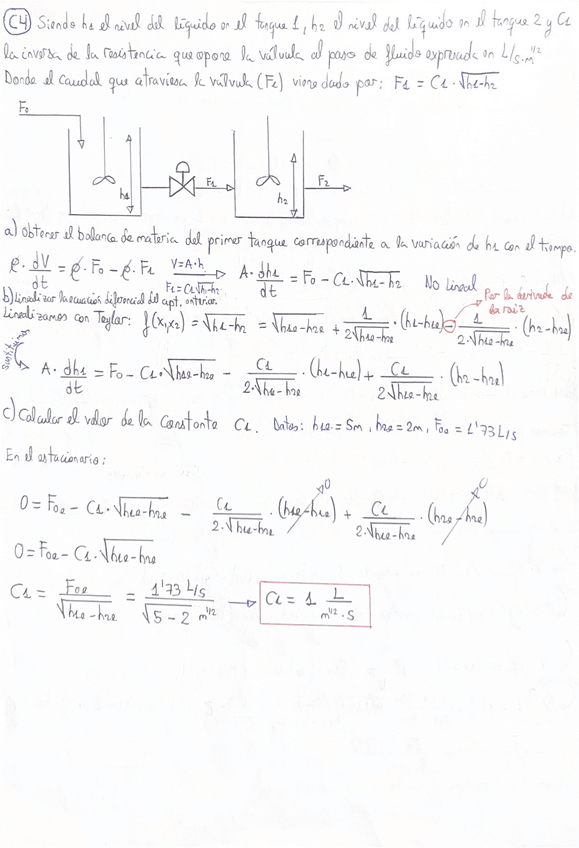 C4 Siendo h1 el nivel del líquido en el tanque 1, h2 el nivel del líquido en el tanque 2 y C1
la inversa de la resistencia que opone la válvula al paso de fluido expresada en L/s·m^1/2
Donde el caudal que atraviesa la válvula (F1) viene dado por: F1 = C1·√h1-h2
F0
h1
F1
h2
F2
a) Obtener el balance de materia del primer tanque correspondiente a la variación de h1 con el tiempo.
ρ·dV/dt = ρ·F0 - ρ·F1 V=A·h. F1=C1√h1-h2 → A·dh1/dt = F0 - C1·√h1-h2 No Lineal
Por la derivada de la raiz
b) Linealizar la ecuación diferencial del apt. anterior.
Linealizamos con Taylor: f(x1,x2) = √h1-h2 = √h1e-h2e + 1/2√h1e-h2e · (h1-h1e) - 1/2·√h1e-h2e · (h2-h2e)
Sustituimos
A·dh1/dt = F0 - C1·√h1e-h2e - C1/2·√h1e-h2e · (h1-h1e) + C1/2√h1e-h2e · (h2-h2e)
c) Calcular el valor de la constante C1. Datos: h1e = 5m, h2e = 2m, F0e = 1'73 L/s
En el estacionario:
0 = F0e - C1·√h1e-h2e - C1/2·√h1e-h2e · (h1e-h1e) 0 + C1/2·√h1e-h2e · (h2e-h2e) 0
0 = F0e - C1·√h1e-h2e
C1 = F0e/√h1e-h2e = 1'73 L/s/√5-2 m^1/2 → C1 = 1 L/m^1/2·s